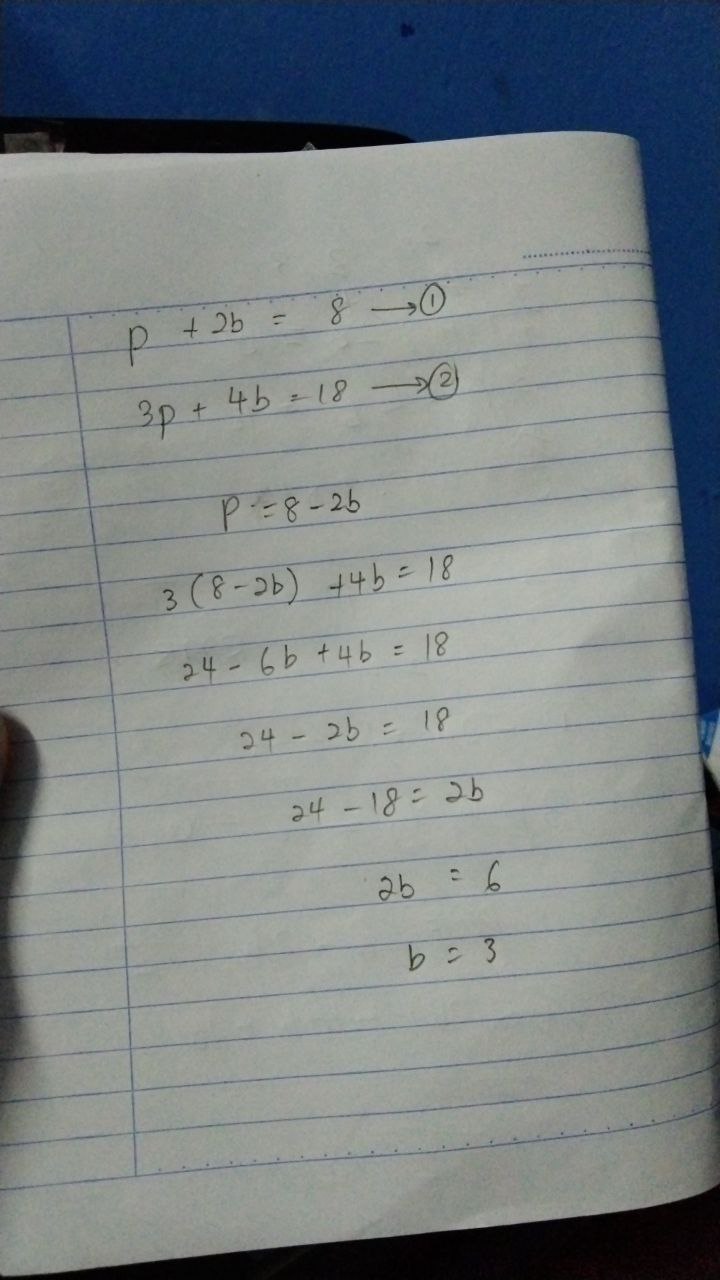 p + 2b = 8 → ①
3p + 4b = 18 → ②
p = 8 - 2b
3 (8 - 2b) + 4b = 18
24 - 6b + 4b = 18
24 - 2b = 18
24 - 18 = 2b
2b = 6
b = 3